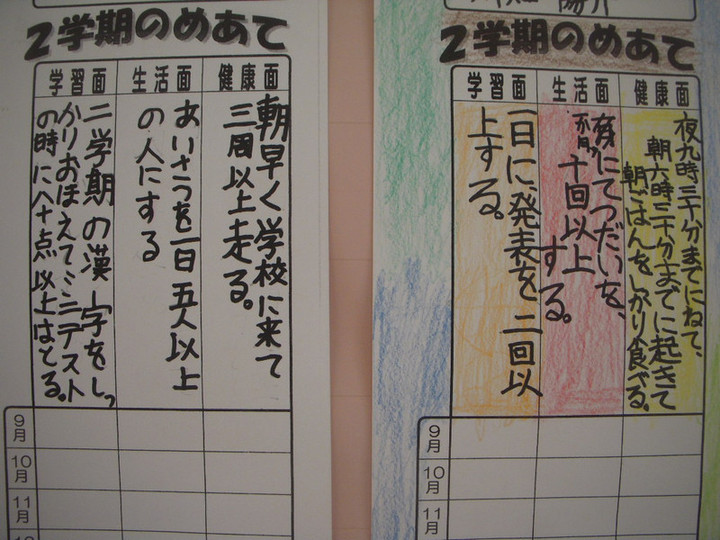 2学期のめあて
健康面
朝早く学校に来て
三周以上走る。
生活面
あいさつを一日五人以上
の人にする
学習面
二学期の漢字をしっ
かりおぼえてミニテスト
の時に八十点以上はとる。
9月
10月
11月
2学期のめあて
健康面
夜九時三十分までにねて、
朝六時三十分までに起きて
朝ごはんをしっかり食べる。
生活面
てつだいを、
十回以上
する。
学習面
一日に、発表を二回以
上する。
9月
10月
11月